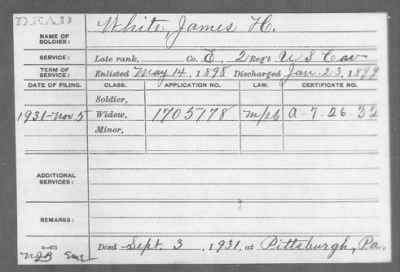 DEAD
NAME OF SOLDIER: White, James H.
SERVICE: Late rank, Co. E, 2 Regt U S Cav
TERM OF SERVICE: Enlisted May 14, 1898 Discharged Jan. 23, 1899
DATE OF FILING. CLASS. APPLICATION NO. LAW. CERTIFICATE NO.
Soldier,
1931-Nov 5 Widow, 1705178 A-7-26-32
Minor,
ADDITIONAL SERVICES:
REMARKS:
Died Sept. 3, 1931, at Pittsburgh, Pa.